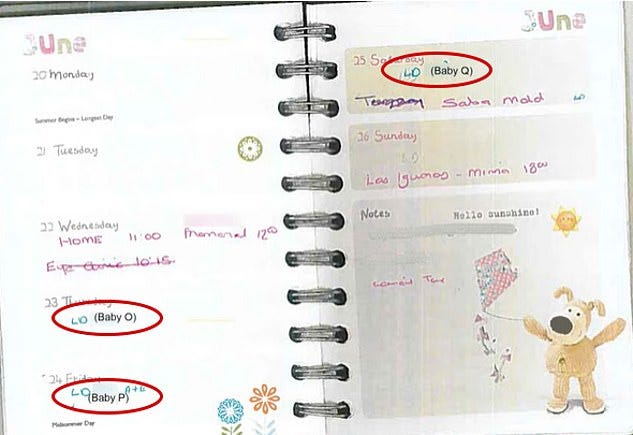 June
20 Monday
Summer Begins - Longest Day
21 Tuesday
22 Wednesday
HOME 11:00
12:00
Eye Clinic 10:15
23 Thursday
LD (Baby O)
24 Friday
LD (Baby P)
Midsummer Day
June
25 Saturday
LD (Baby Q)
Saba Mold LD
26 Sunday
LD
Las Iguanas - Mina 18:00
Notes Hello sunshine!